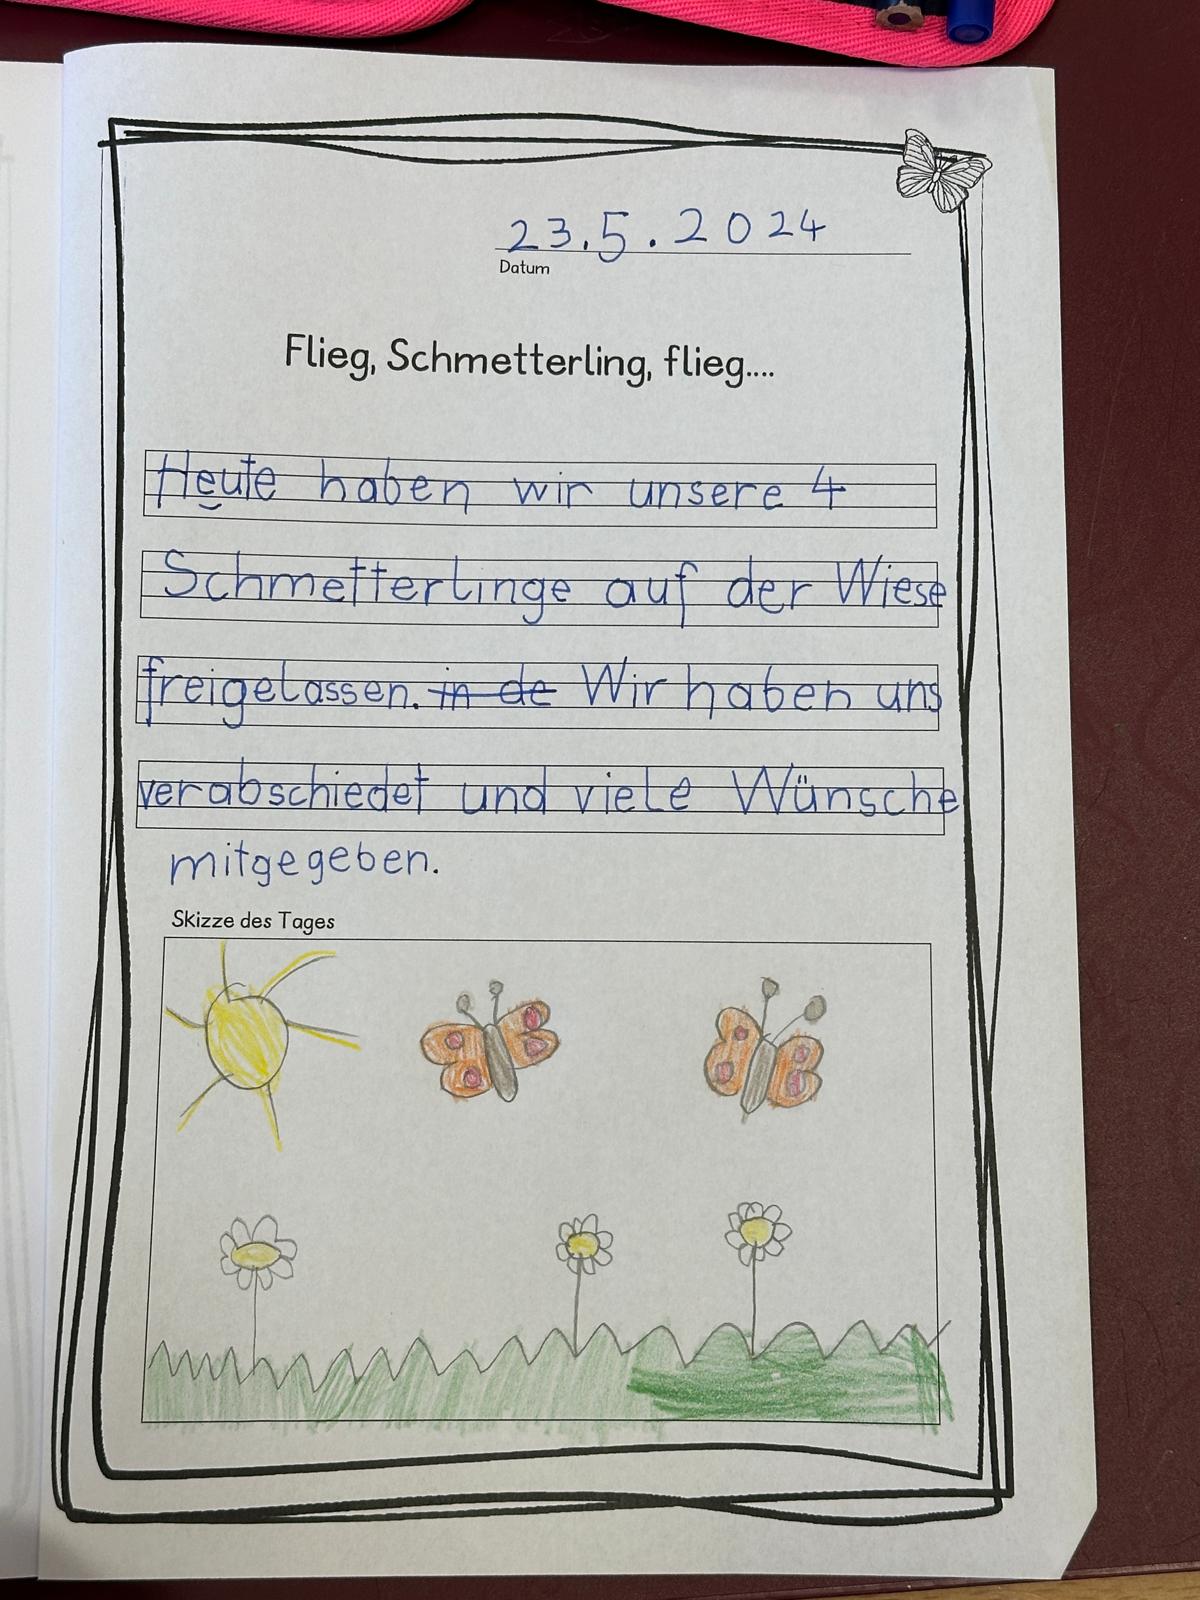 23.5.2024
Datum
Flieg, Schmetterling, flieg....
Heute haben wir unsere 4
Schmetterlinge auf der Wiese
freigelassen. in de Wir haben uns
verabschiedet und viele Wünsche
mitgegeben.
Skizze des Tages